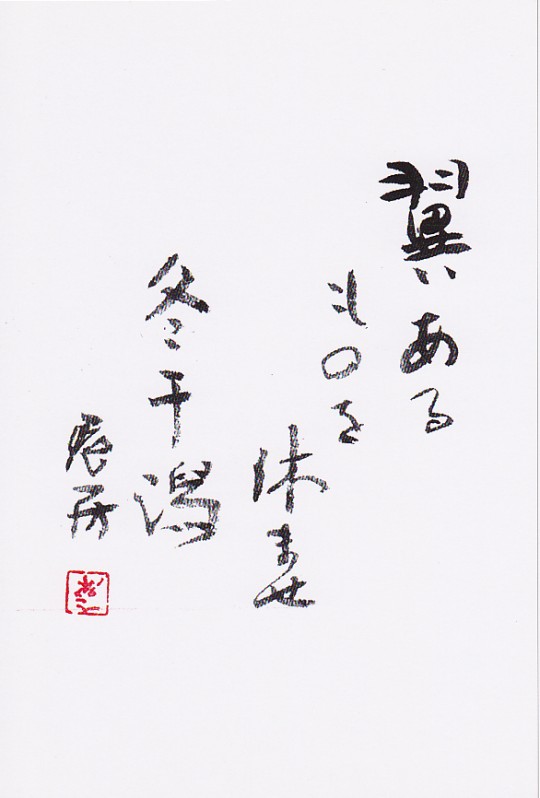 翼ある
ものを
休ませ
冬干潟
辰男